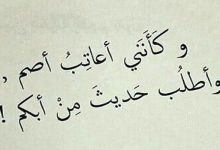 و كَأنَّني أعاتِبُ أصم ,
وأطلُب حَديثَ مِنْ أبكم !